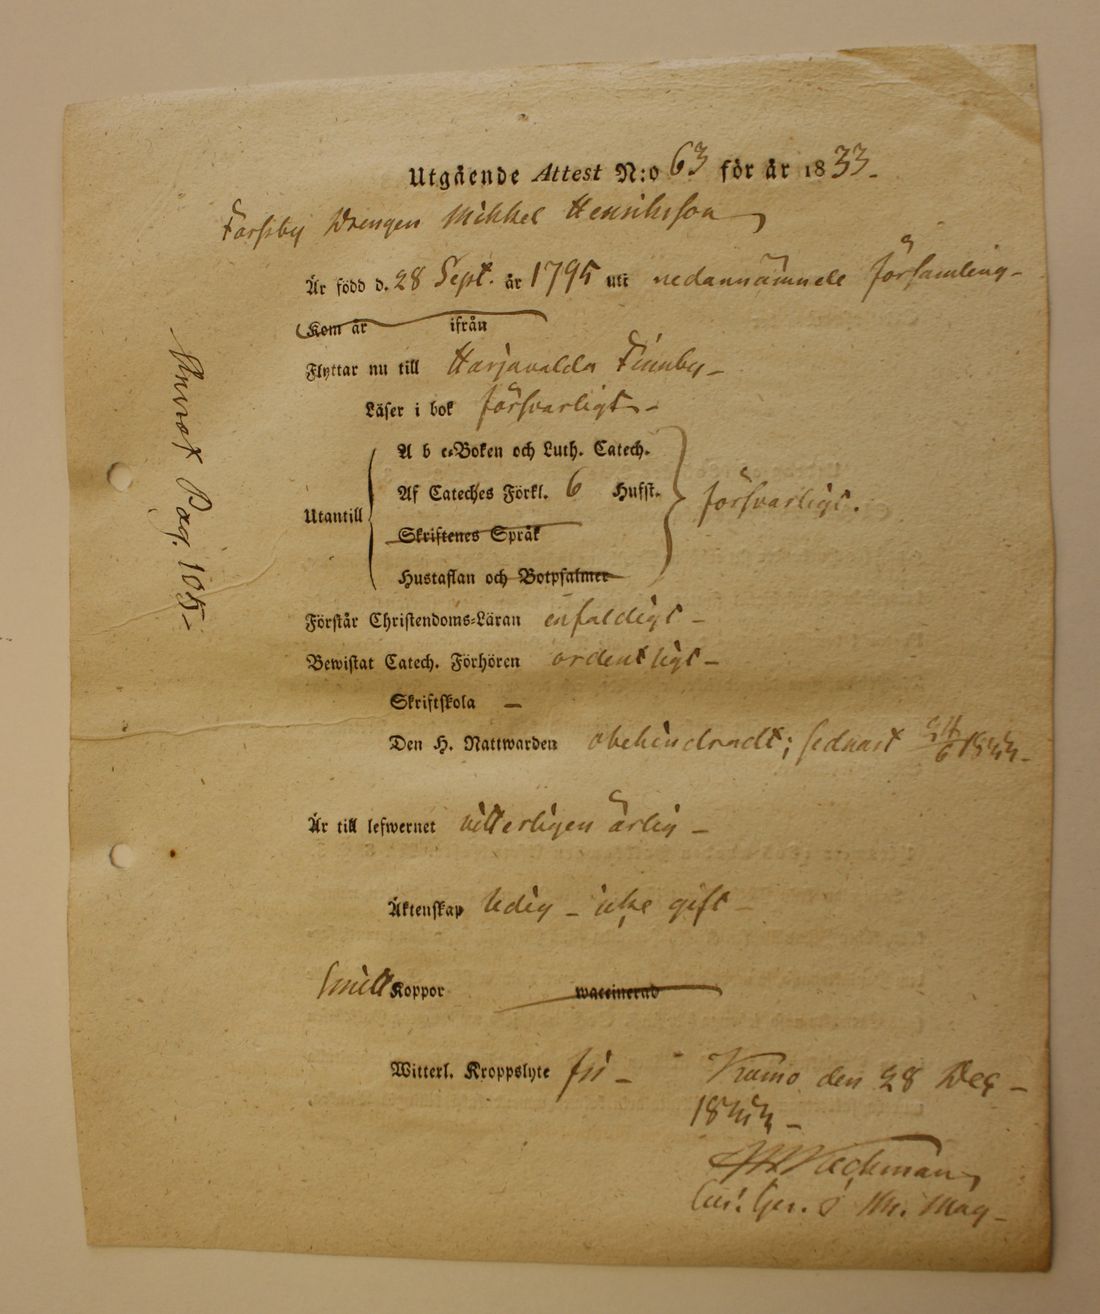 Utgående Attest N:o 63 för år 1833.
Forsby Drengen Mikkel Henriksson
Är född d. 28 Sept. år 1795 uti nedannämnde församling
Kom är ifrån
Flyttar nu till Harjavalda Finnby
Läser i bok försvarligt
A b c-Boken och Luth. Catech.
Af Cateches Förkl. 6 Hufst.
Utantill försvarligt.
Skriftenes Språk
Hustaflan och Botpsalmer
Förstår Christendoms-Läran enfaldigt
Bewistat Catech. Förhören ordentligt
Skriftskola —
Den H. Nattwarden obehindradt; sednast 24/6 1833
Är till lefwernet vitterligen ärlig
Äktenskap ledig – icke gift
Koppor waccinerad
Witterl. Kroppslyte fri
Kumo den 28 Dec
1833
Pag. 105